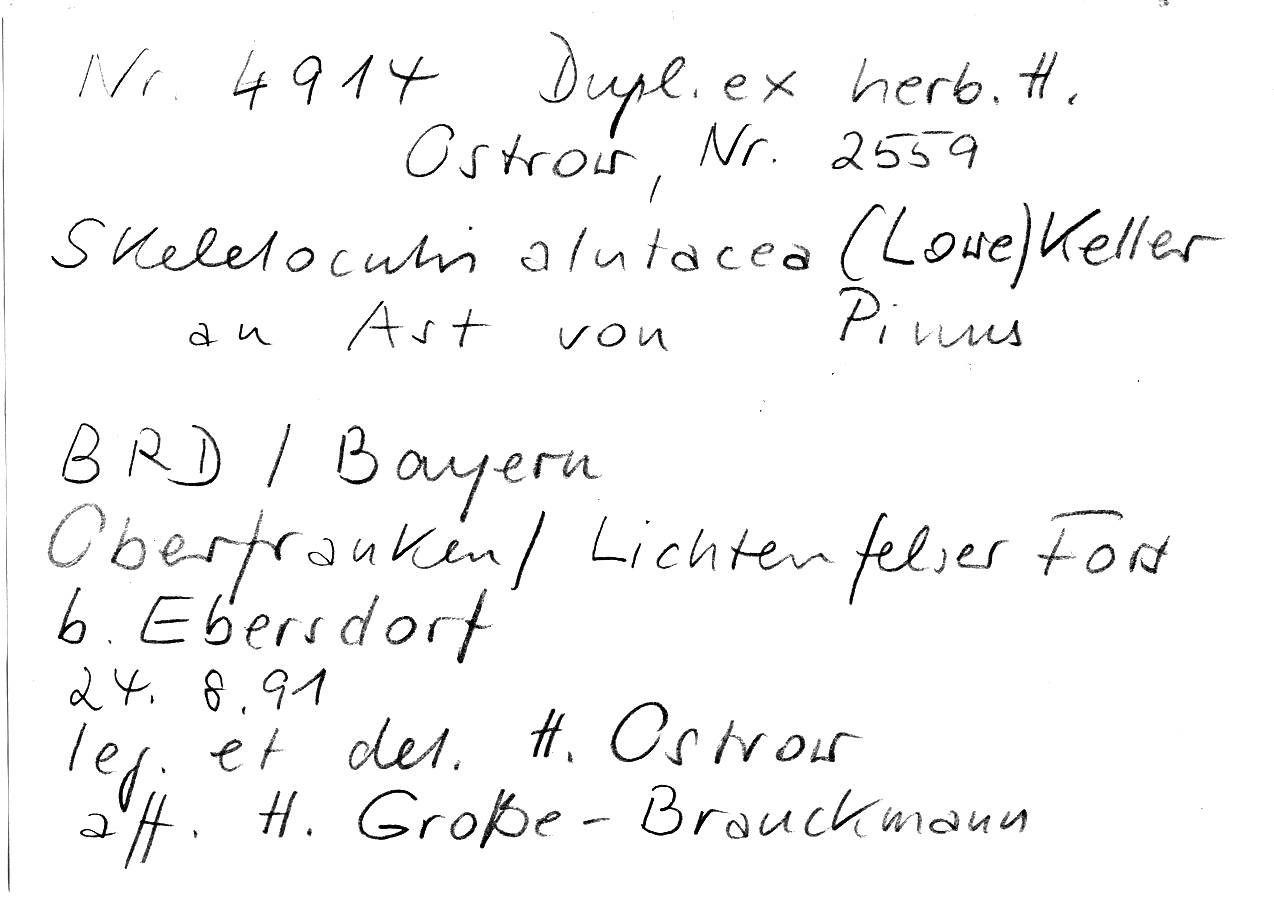 Nr. 4914 Dupl. ex herb. H.
Ostrow, Nr. 2559
Skeletocutis alutacea (Lowe) Keller
an Ast von Pinus
BRD / Bayern
Oberfranken / Lichtenfelser Forst
b. Ebersdorf
24. 8. 91
leg. et det. H. Ostrow
aff. H. Große-Brauckmann